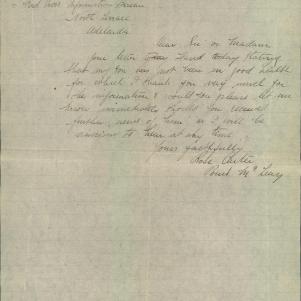 Red Cross Information Bureau
North Terrace
Adelaide
Dear Sir or Madam
Your letter was to hand today stating
that my son has not been in good health
for which I thank you very much for
the information & would you please let me
know immediately should you receive
further news of him as I will be
anxious to hear at any time.
Yours faithfully
Rose Carter
Point McLeay